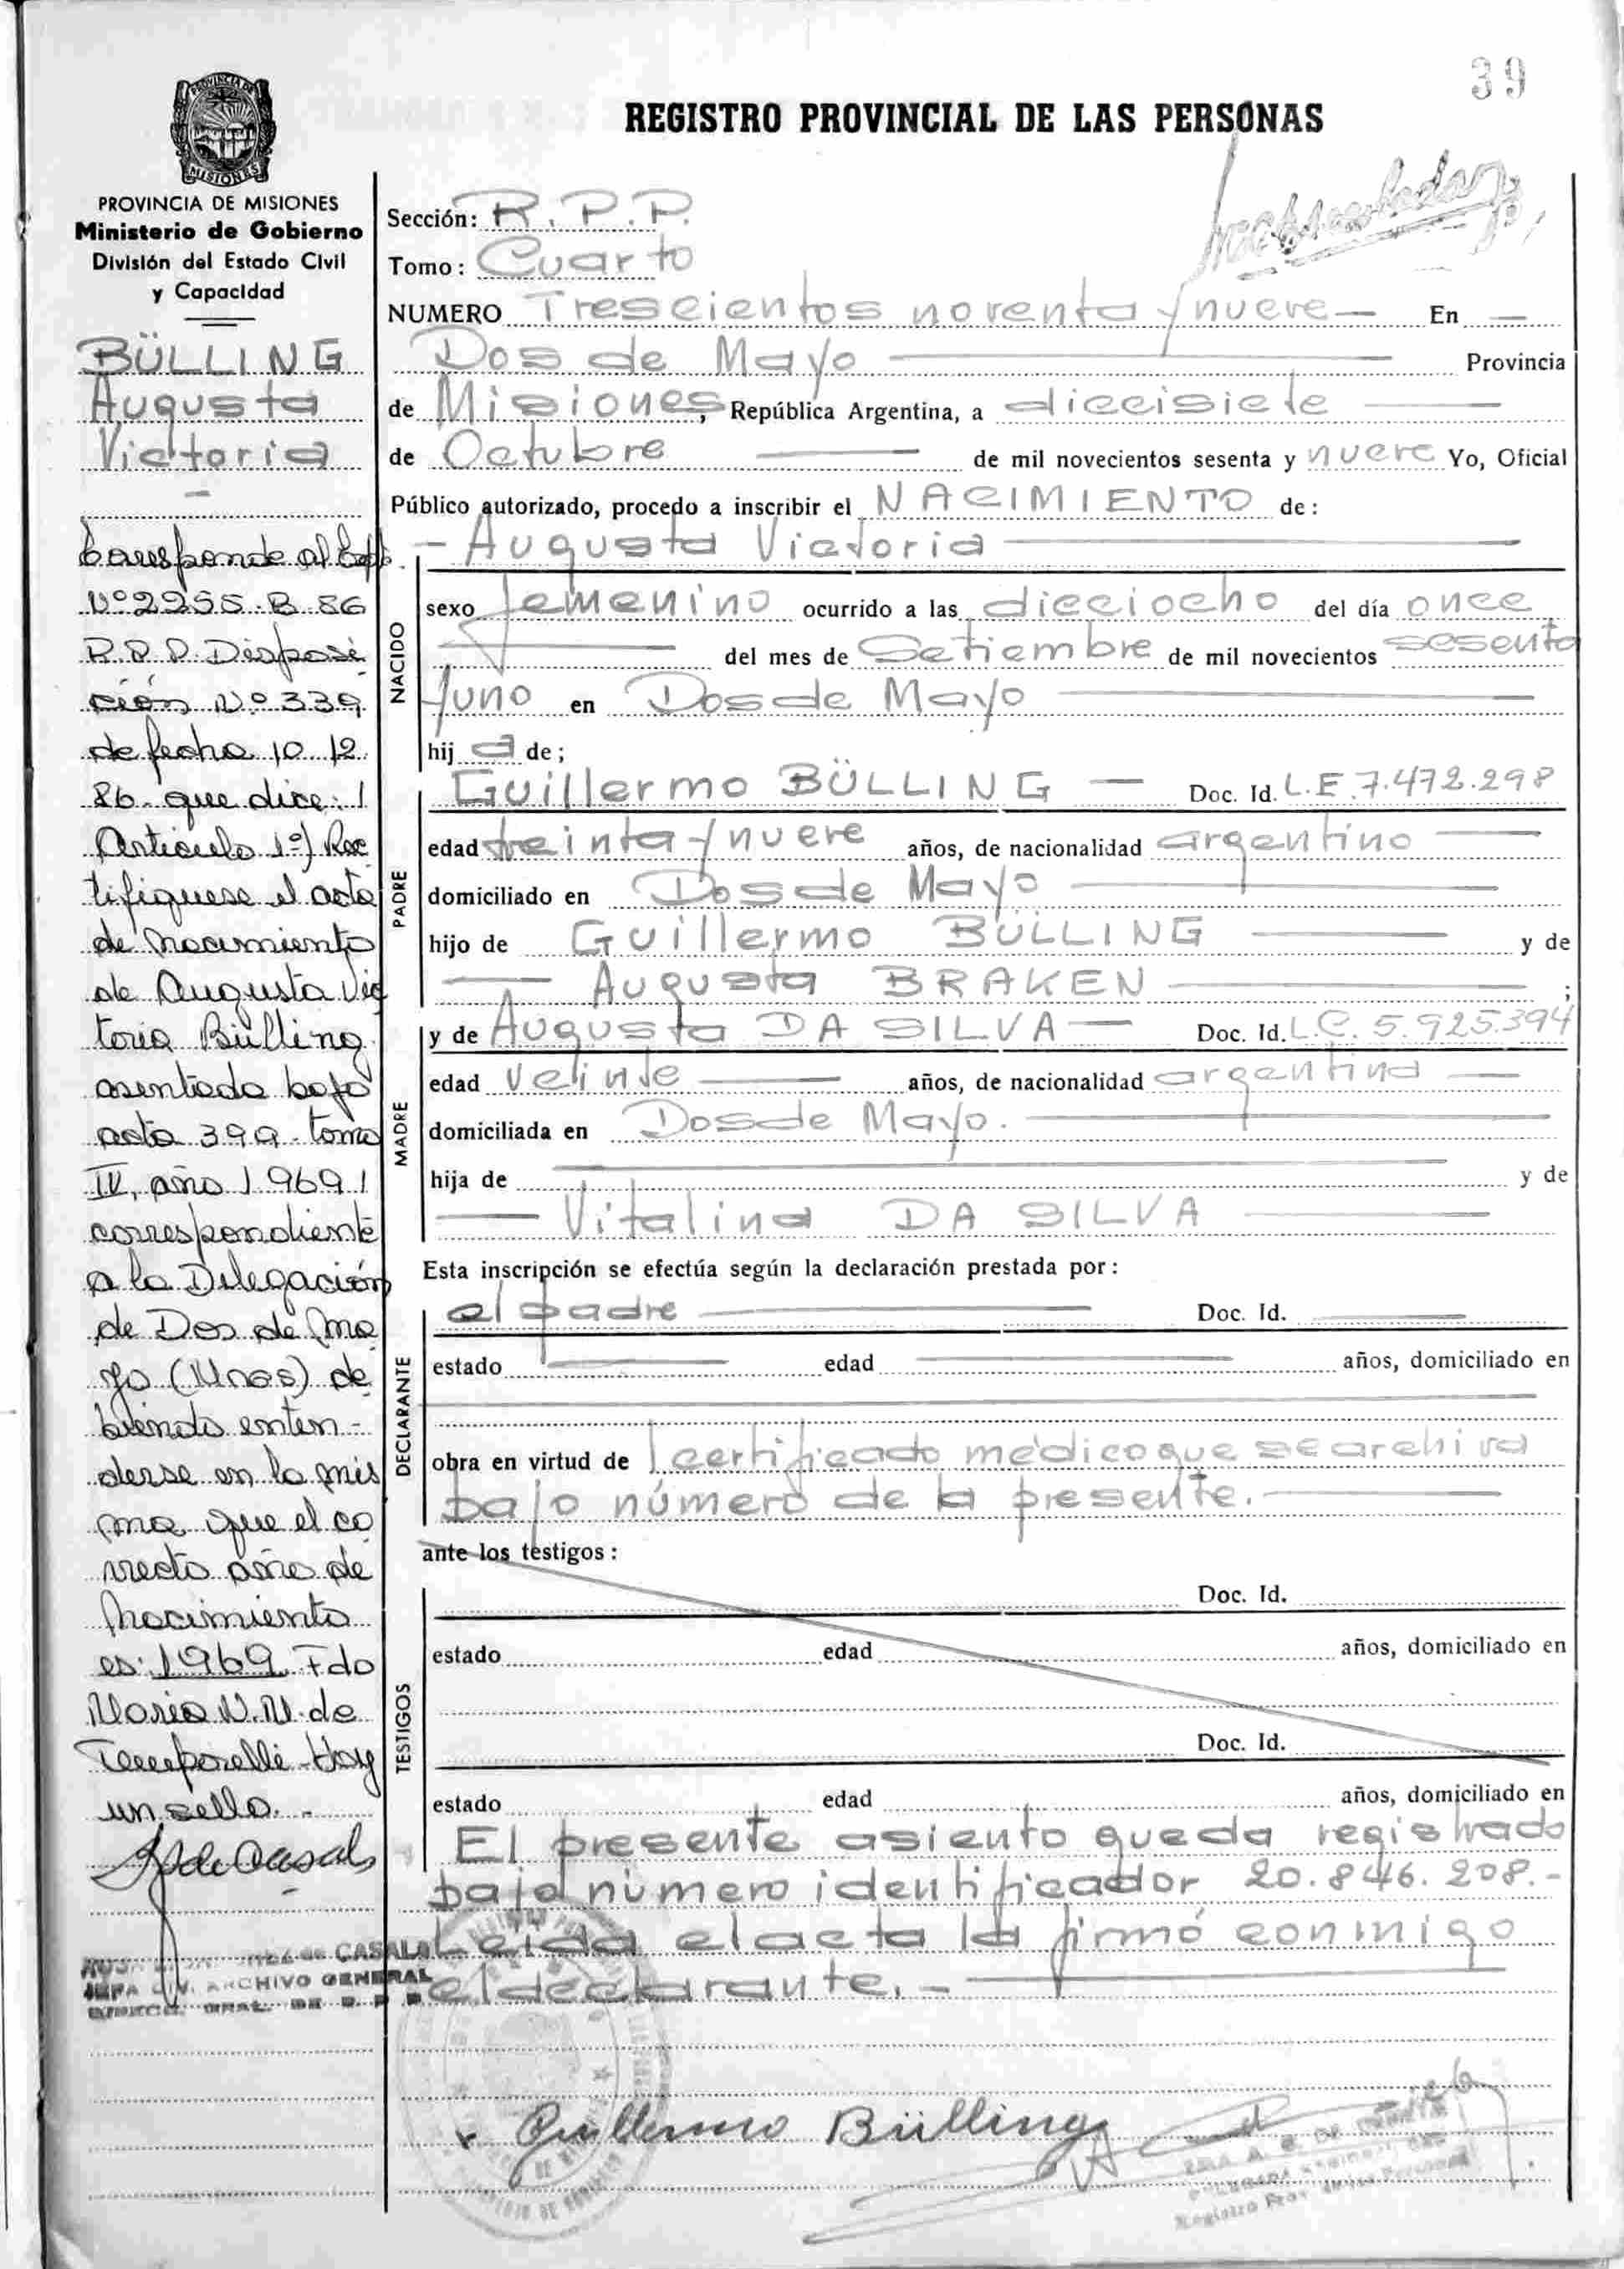 39
REGISTRO PROVINCIAL DE LAS PERSONAS
PROVINCIA DE MISIONES
PROVINCIA DE MISIONES
Ministerio de Gobierno
División del Estado Civil
y Capacidad
BÜLLING
Augusta
Victoria
Corresponde al Exp.
Nº 2255-B-86
R.P.P. Disposi
ción Nº 339
de fecha 10-12-
86- que dice: 1
Artículo 1º) Rec
tifíquese el acta
de Nacimiento
de Augusta Vic
toria Bülling
asentada bajo
acta 399- tomo
IV, año 1969 1
correspondiente
a la Delegación
de Dos de Ma
yo (Mnes) de
biendo enten-
derse en la mis
ma que el co
rrecto año de
Nacimiento
es: 1969 Fdo
Maria N. M. de
Temporelli- Hay
un sello.-
CASALA
JEFA DIV. ARCHIVO GENERAL
DIRECC. GRAL. DE R P P
Sección: R.P.P.
Tomo: Cuarto
NUMERO Trescientos noventa y nueve — En —
Dos de Mayo — Provincia
de Misiones, República Argentina, a diecisiete —
de Octubre — de mil novecientos sesenta y nueve Yo, Oficial
Público autorizado, procedo a inscribir el NACIMIENTO de:
- Augusta Victoria —
NACIDO
sexo femenino ocurrido a las dieciocho del día once
— del mes de Setiembre de mil novecientos sesenta
y uno en Dos de Mayo —
hij a de;
PADRE
Guillermo BÜLLING — Doc. Id. L.E.7.472.298
edad treinta y nueve años, de nacionalidad argentino —
domiciliado en Dos de Mayo —
hijo de Guillermo BÜLLING — y de
— Augusta BRAKEN — ;
MADRE
y de Augusta DA SILVA — Doc. Id. L.C. 5.925.394
edad veinte — años, de nacionalidad argentina —
domiciliada en Dos de Mayo. —
hija de — y de
— Vitalina DA SILVA —
Esta inscripción se efectúa según la declaración prestada por:
DECLARANTE
el padre — Doc. Id. —
estado — edad — años, domiciliado en
—
obra en virtud de certificado médico que se archiva
bajo número de la presente. —
ante los testigos:
TESTIGOS
Doc. Id.
estado edad años, domiciliado en
Doc. Id.
estado edad años, domiciliado en
El presente asiento queda registrado
bajo número identificador 20.846.208.-
Leída el acta la firmó conmigo
el declarante. - —
Guillermo Bülling